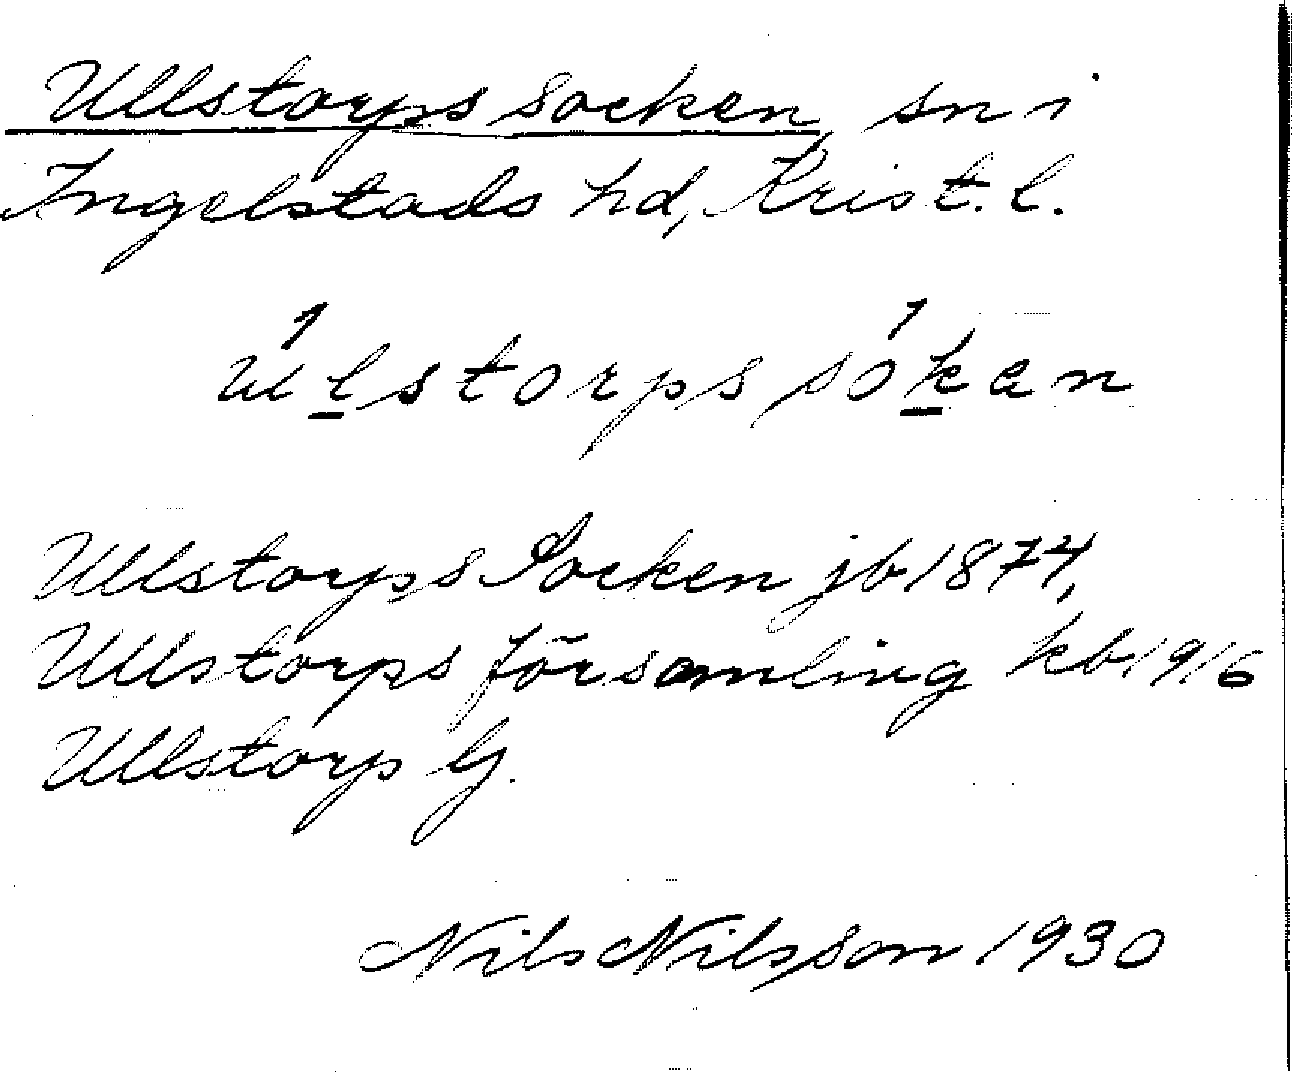 Ullstorps socken, sn i
Ingelstads hd, Krist. l.
úl̲storps sók̲en
Ullstorps Socken jb 1874,
Ullstorps församling kb 1916
Ullstorp G.
Nils Nilsson 1930